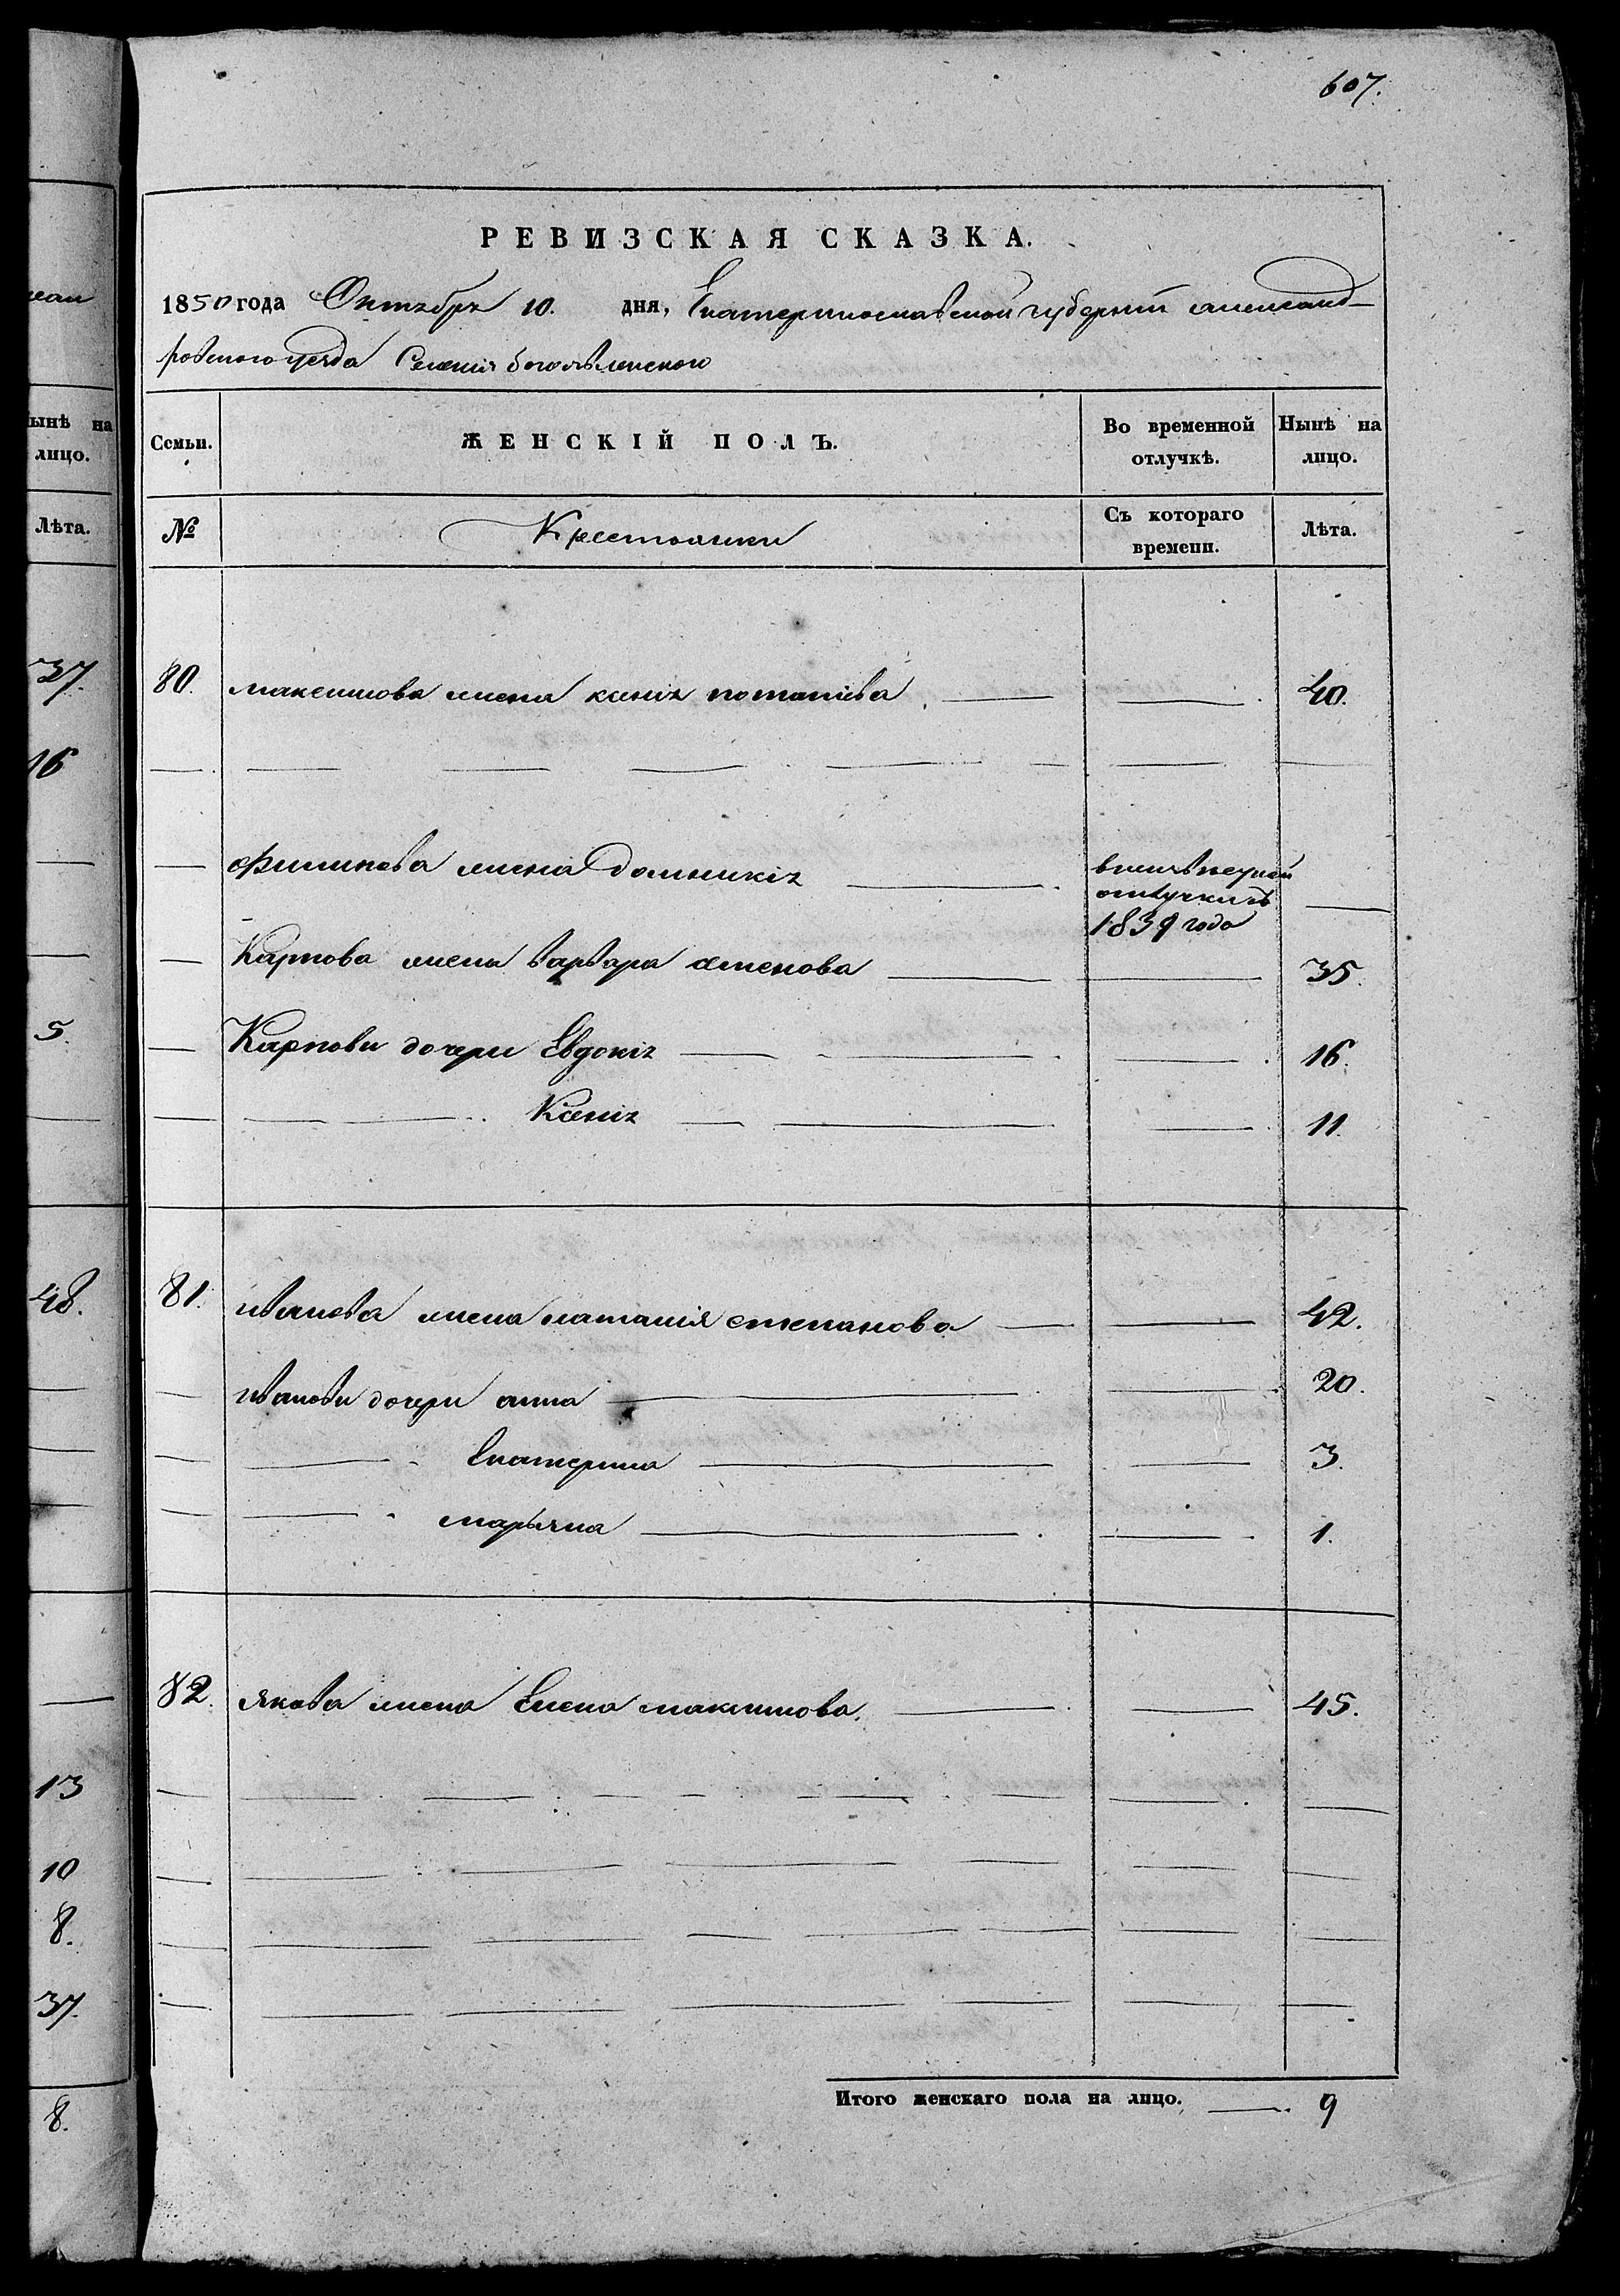 607.
РЕВИЗСКАЯ СКАЗКА.
1850 года Октября 10. дня, Екатеринославской губерніи александ-
ровского уезда Селенія богоявленского
Семьи. ЖЕНСКІЙ ПОЛЪ. Во временной отлучкѣ. Нынѣ на лицо.
№ Крестьянки Съ котораго времени. Лѣта.
80. максимова жена ксенія потапіева 40.
филипова жена Домникія
отлучки съ
1839 года
Карпова жена варвара семенова 35.
Карпови дочери Евдокія 16.
Ксенія 11.
81. иванова жена наталія степанова 42.
иванови дочери анна 20.
Екатерина 3.
марьяна 1.
82. якова жена Елена максимова. 45.
Итого женскаго пола на лицо. 9
ынѣ на
лицо.
Лѣта.
37.
16
5.
48.
13
10
8.
37.
8.